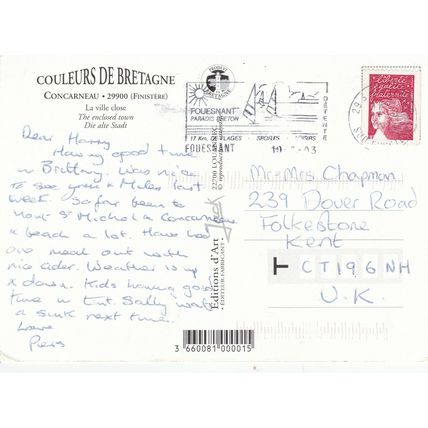 COULEURS DE BRETAGNE
CONCARNEAU • 29900 (FINISTÈRE)
La ville close
The enclosed town
Die alte Stadt
PRODUIT EN BRETAGNE
FOUESNANT
PARADIS BRETON
17 Km DE PLAGES SPORTS LOISIRS
DETENTE
FOUESNANT
Liberté
égalité
fraternité
Dear Harry
Having good time
in Brittany. Was nice
to see you & Miles last
week. So far been to
Mont St Michel & Concarneau
& beach a lot. Have had
one meal out with
nice cider. Weather is up
& down. Kids having good
time in Sally
a next time.
Love
Piers
22700 LOUANNEC
Jack
Editions d'Art
• EDITEUR FABRICANT •
Mr Mrs Chapman
239 Dover Road
Folkestone
Kent
CT19 6NH
U.K.
3 660081 000015